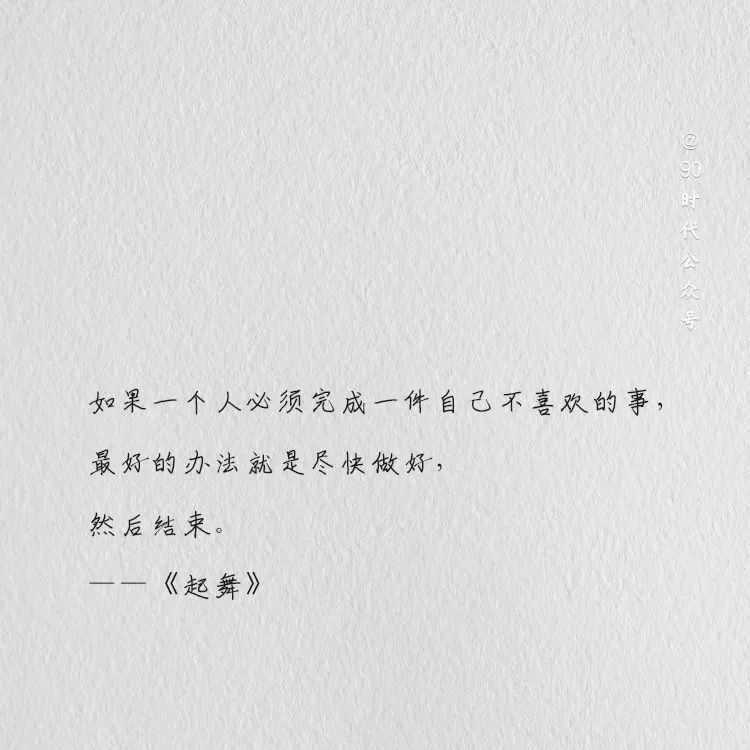 @90时代公众号
如果一个人必须完成一件自己不喜欢的事，
最好的办法就是尽快做好，
然后结束。
——《起舞》